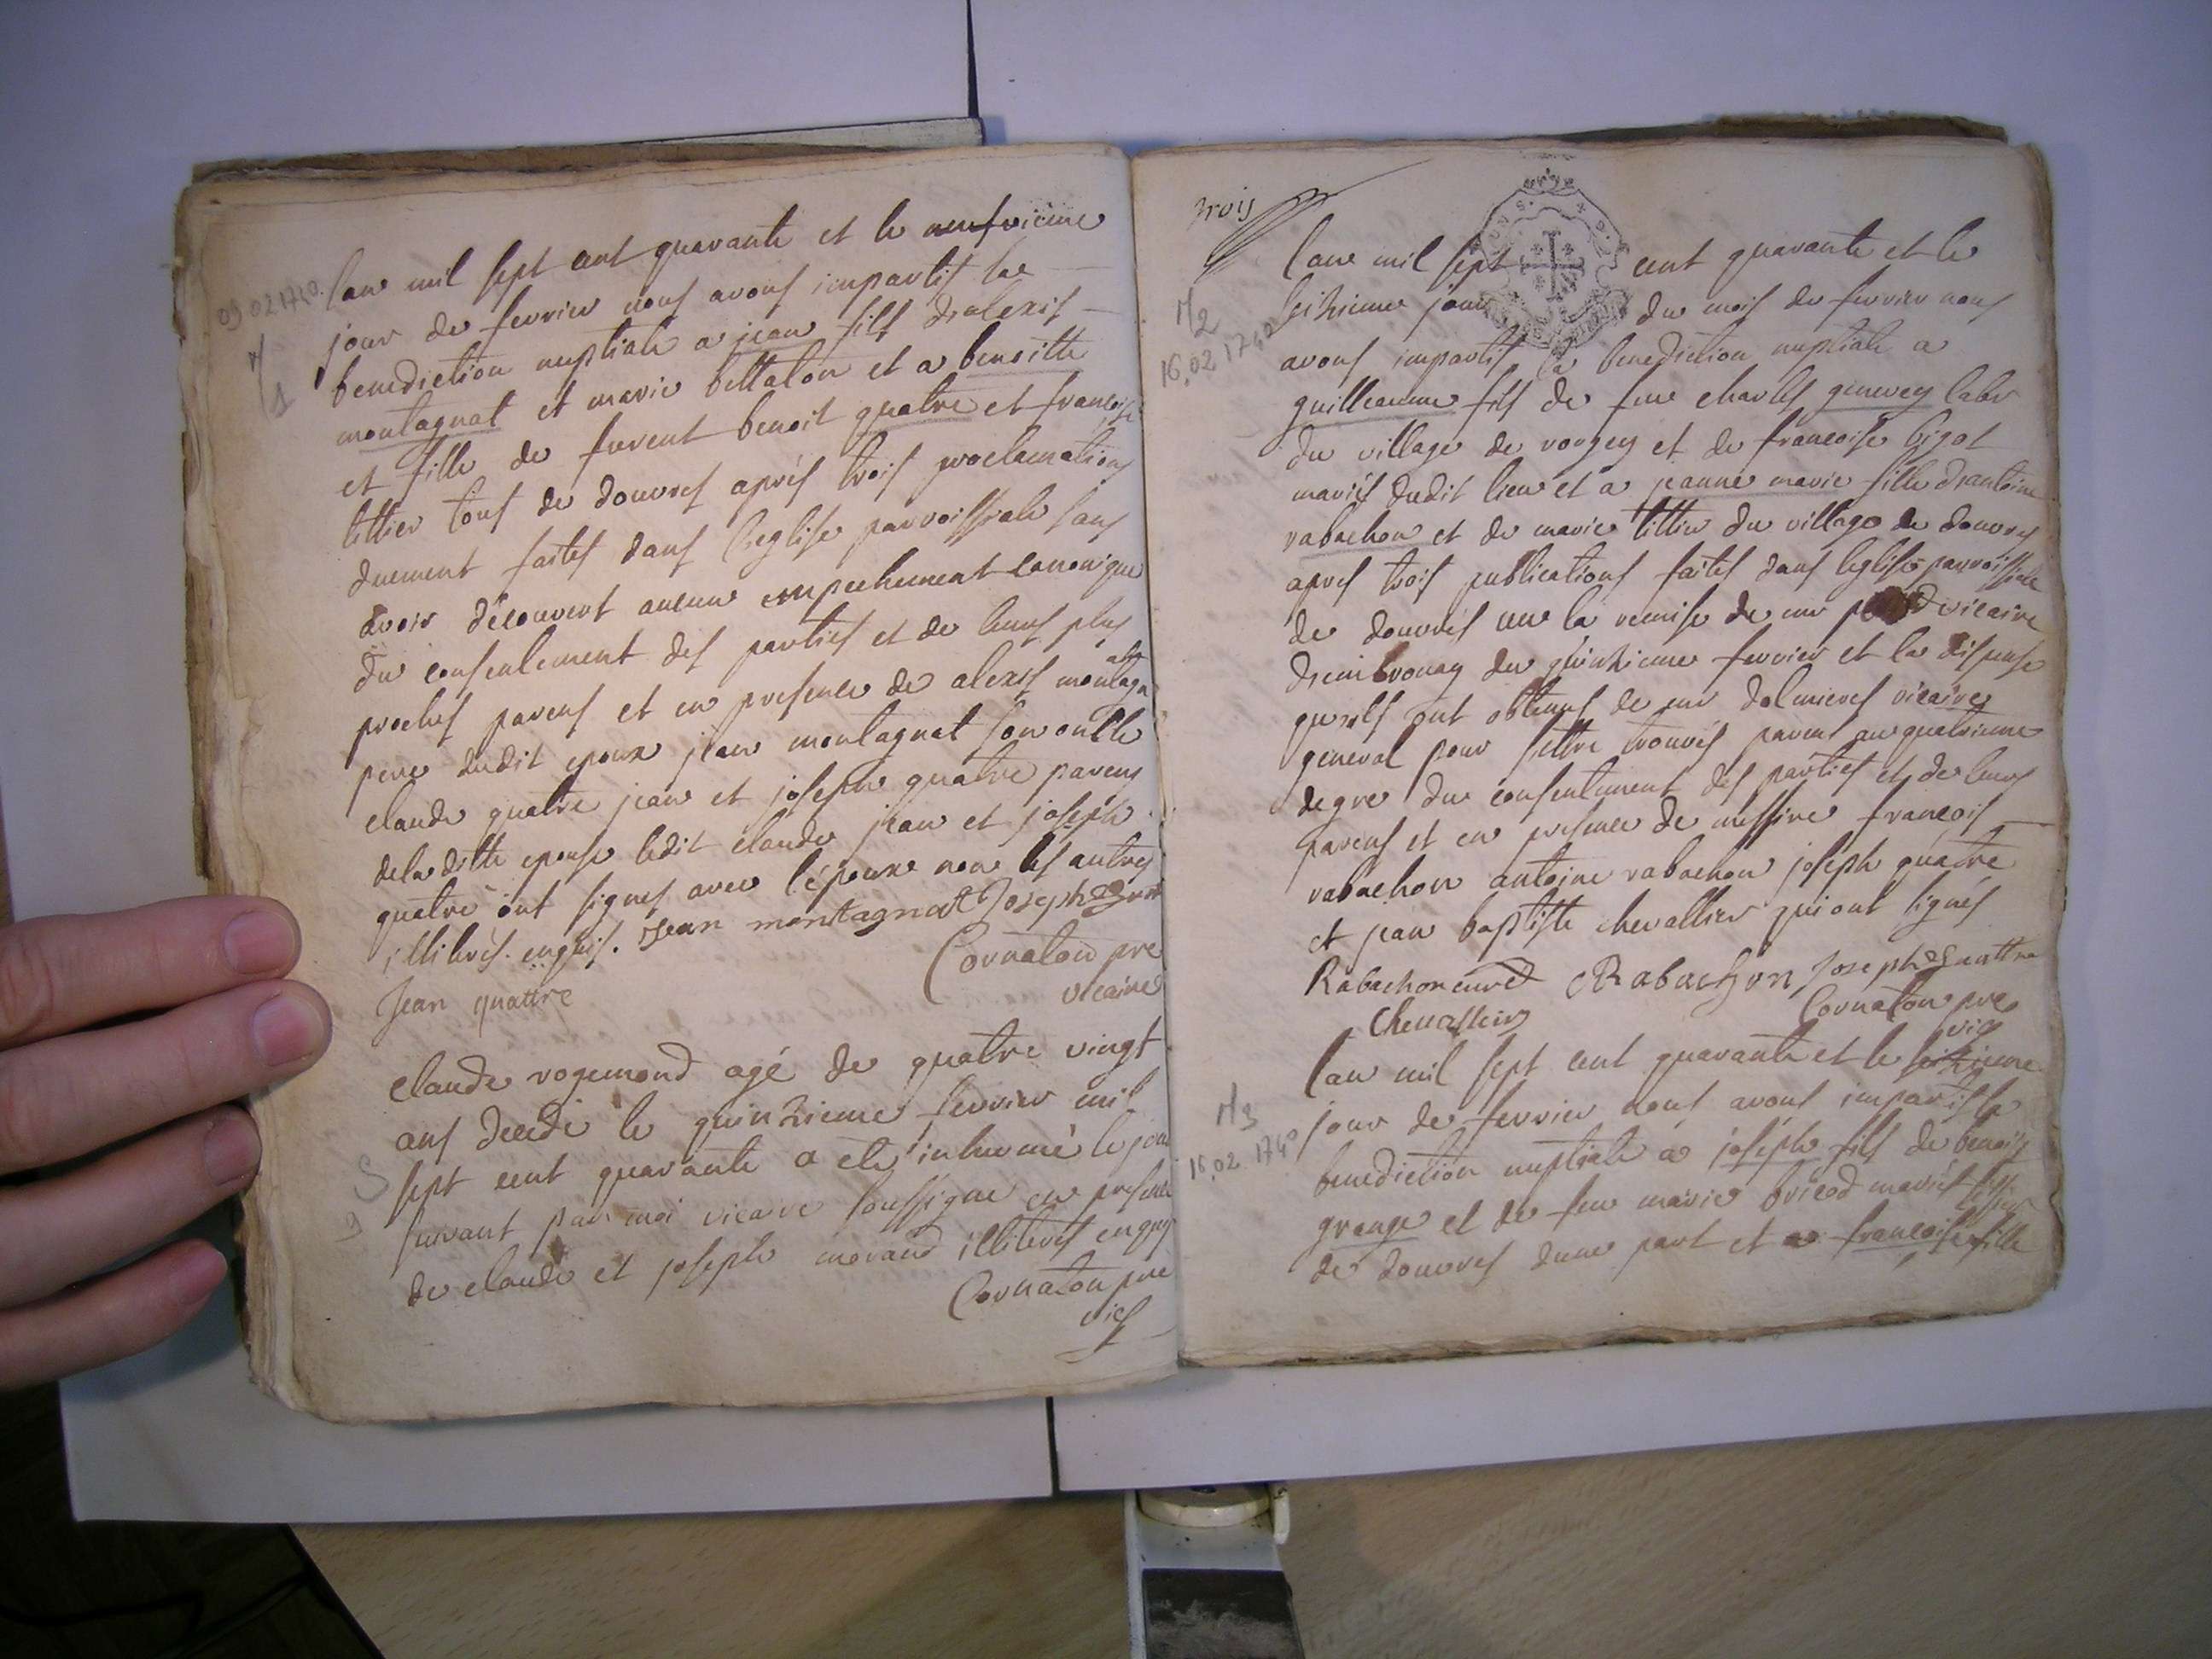 09 02 1740
M/1
lan mil sept cent quarante et le neufvieme
jour de fevrier nous avons impartis la
benediction nuptiale a jean fils d'alexis
montagnat et marie bettaton et a benoitte
et fille de furent benoit quatre et francoise
littier tous de douvres aprés trois proclamations
duement faites dans l'eglise parroissiale sans
avoir découvert aucun empechement canonique
du consentement des parties et de leurs plus
proches parens et en presence de alexis montagnat
pere dudit epoux jean montagnat son oncle
claude quatre jean et joseph quatre parens
de la ditte epouse ledit claude jean et joseph
quatre ont signes avec l'époux non les autres
illiteres enquis. Jean montagnat Joseph
Cornaton pre
Jean quattre
vicaire
S
9
claude rogemond agé de quatre vingt
ans decedé le quinzieme fevrier mil
sept cent quarante a ete inhumé le jour
suivant par moi vicaire soussigne en presence
de claude et joseph morand illiteres enquis
Cornaton pre
vic
trois
M/2
16.02 1740
lan mil sept cent quarante et le
seizieme jour du mois de fevrier nous
avons impartis la benediction nuptiale a
guilleaume fils de feu charles genevey labr
du village de vorgey et de francoise bigot
mariés dudit lieu et a jeanne marie fille d'antoine
rabachon et de marie littier du village de douvres
apres trois publications faites dans leglise parroissiale
de douvres vu la remise de mr vicaire
d'embronay du quinzieme fevrier et la dispense
quils ont obtenus de mr dolmieres vicaire
general pour settre trouvés parens au quatrieme
degre du consentement des parties et de leurs
parens et en presence de messire francois
rabachon antoine rabachon joseph quatre
et jean baptiste chevallier qui ont signés
Rabachon curé Rabachon Joseph quattre
Chevallier Cornaton pre
vic
M/3
16.02 1740
lan mil sept cent quarante et le seizieme
jour de fevrier nous avons impartis la
benediction nuptiale a joseph fils de benoit
grange et de feu marie bricod mariés
de douvres dune part et a francoise fille